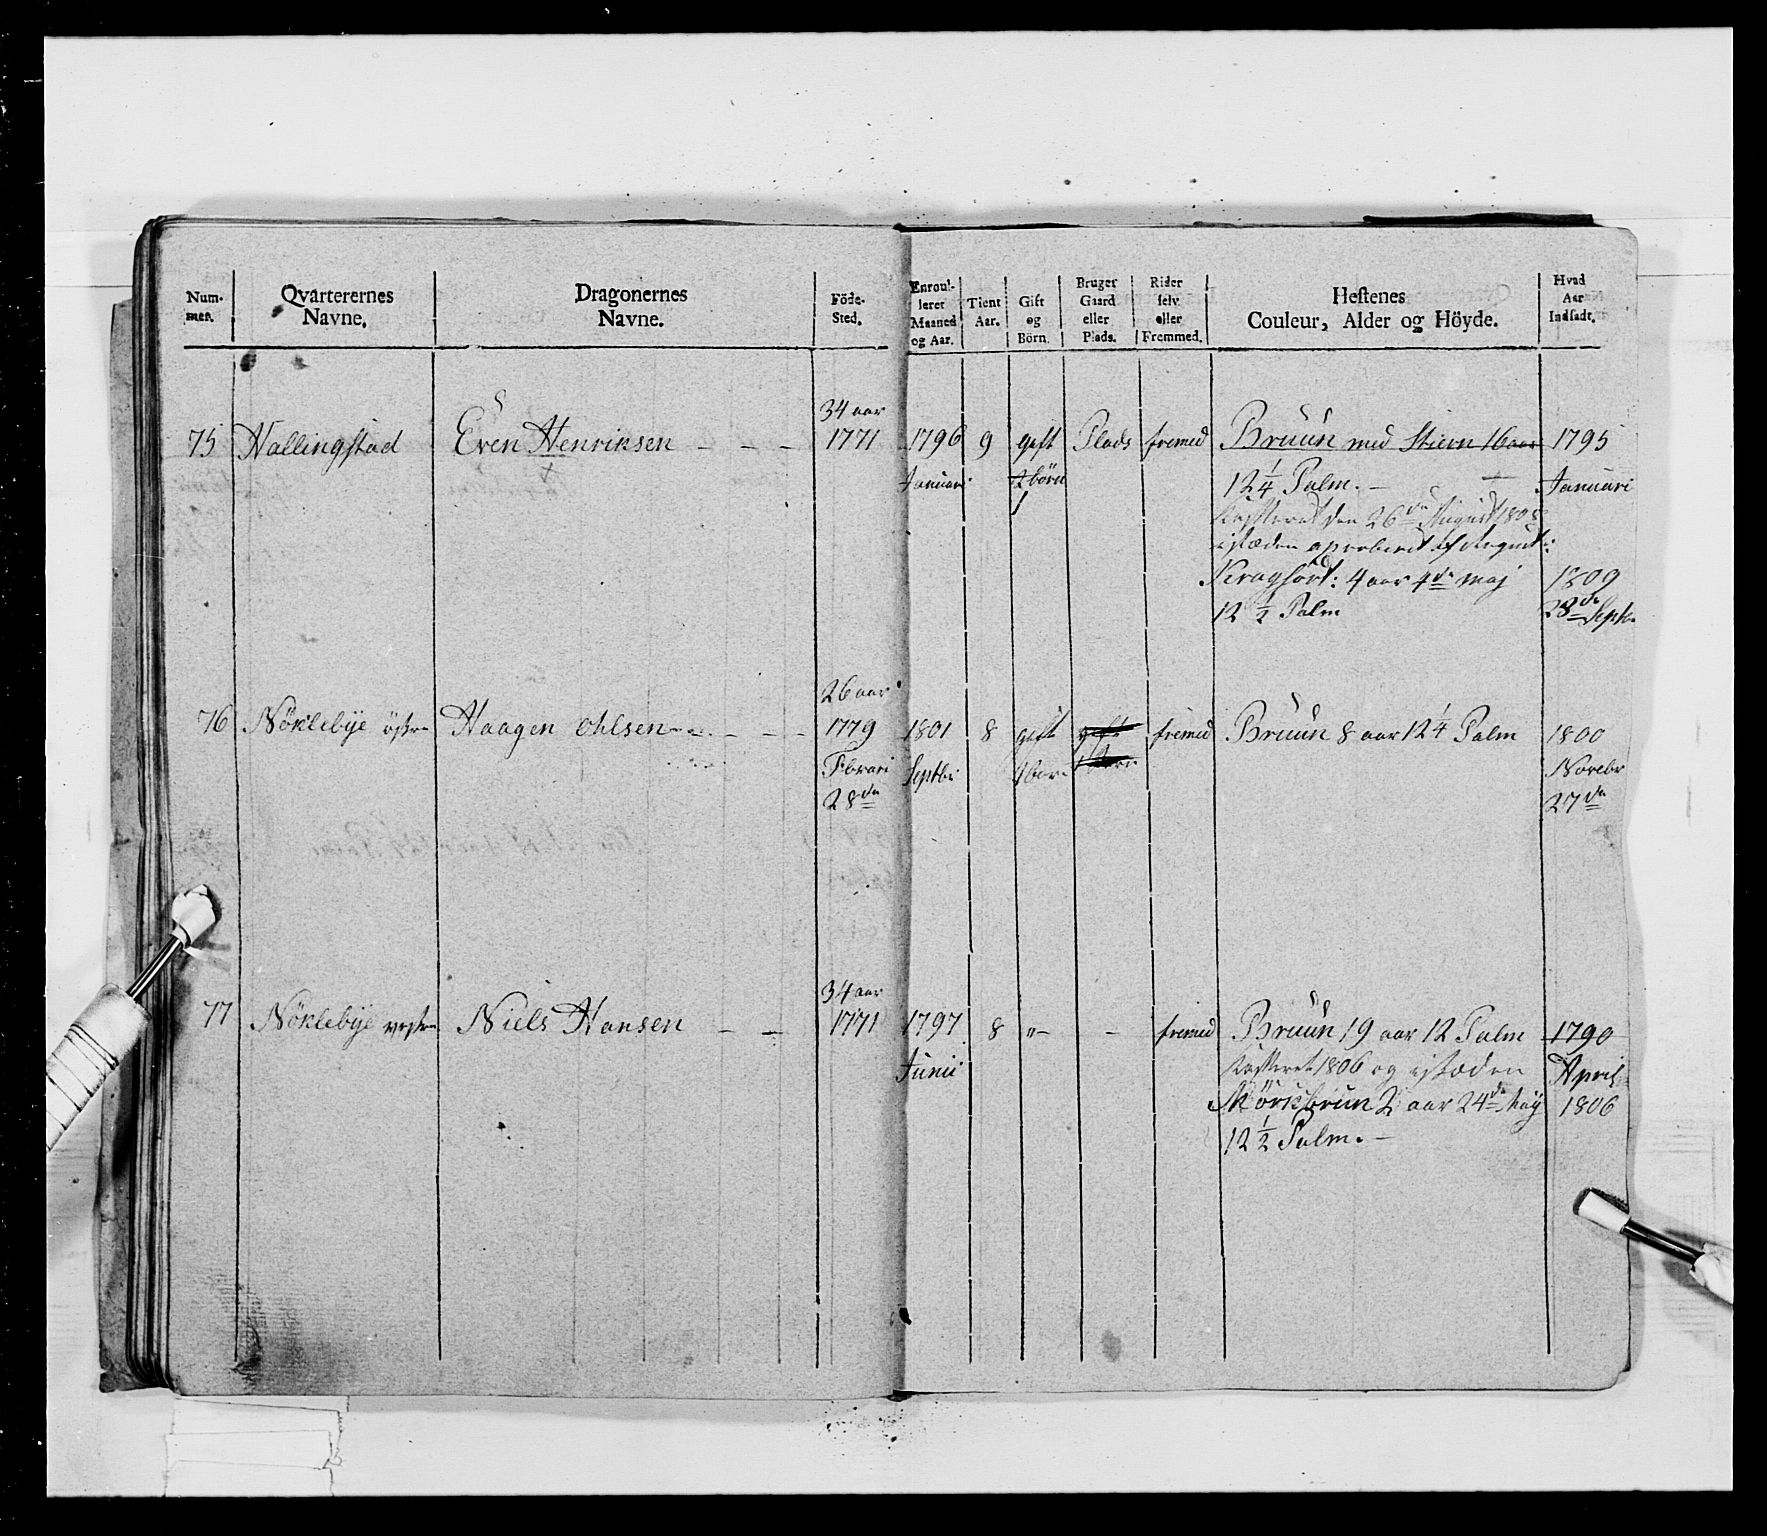 Num-
mer.
Qvarterernes
Navne.
Dragonernes
Navne.
Föde-
Sted.
Enroul-
leret
Maaned
og Aar.
Tient
Aar.
Gift
og
Börn.
Bruger
Gaard
eller
Plads.
Rider
selv
eller
Fremmed.
Hestenes
Couleur, Alder og Höyde.
Hvad
Aar
Indsadt.
34 aar
75 Hallingstad Even Henriksen - - - 1771 1796 9 gift Plads fremed Bruun med Stiern 16 aar 1795
Januari 2 börn 12 1/4 Palm. - Januari
1
Kasseret den 26de August 1808
istæden
4 aar 4de maj 1809
12 1/2 Palm 28de Septr
26 aar
76 Nöklebye östre Haagen Ohlsen - - - 1779 1801 8 gift gift fremed Bruun 8 aar 12 1/4 Palm 1800
Febrari Septbr 1 barn 1 barn Novebr
28de 27de
34 aar
77 Nöklebye vestre Niels Hansen - - 1771 1797 8 "- - fremed Bruun 19 aar 12 Palm 1790
Junii Kasseret 1806 og istæden April
Mörkbrun 2 aar 24de Maÿ 1806
12 1/2 Palm. -